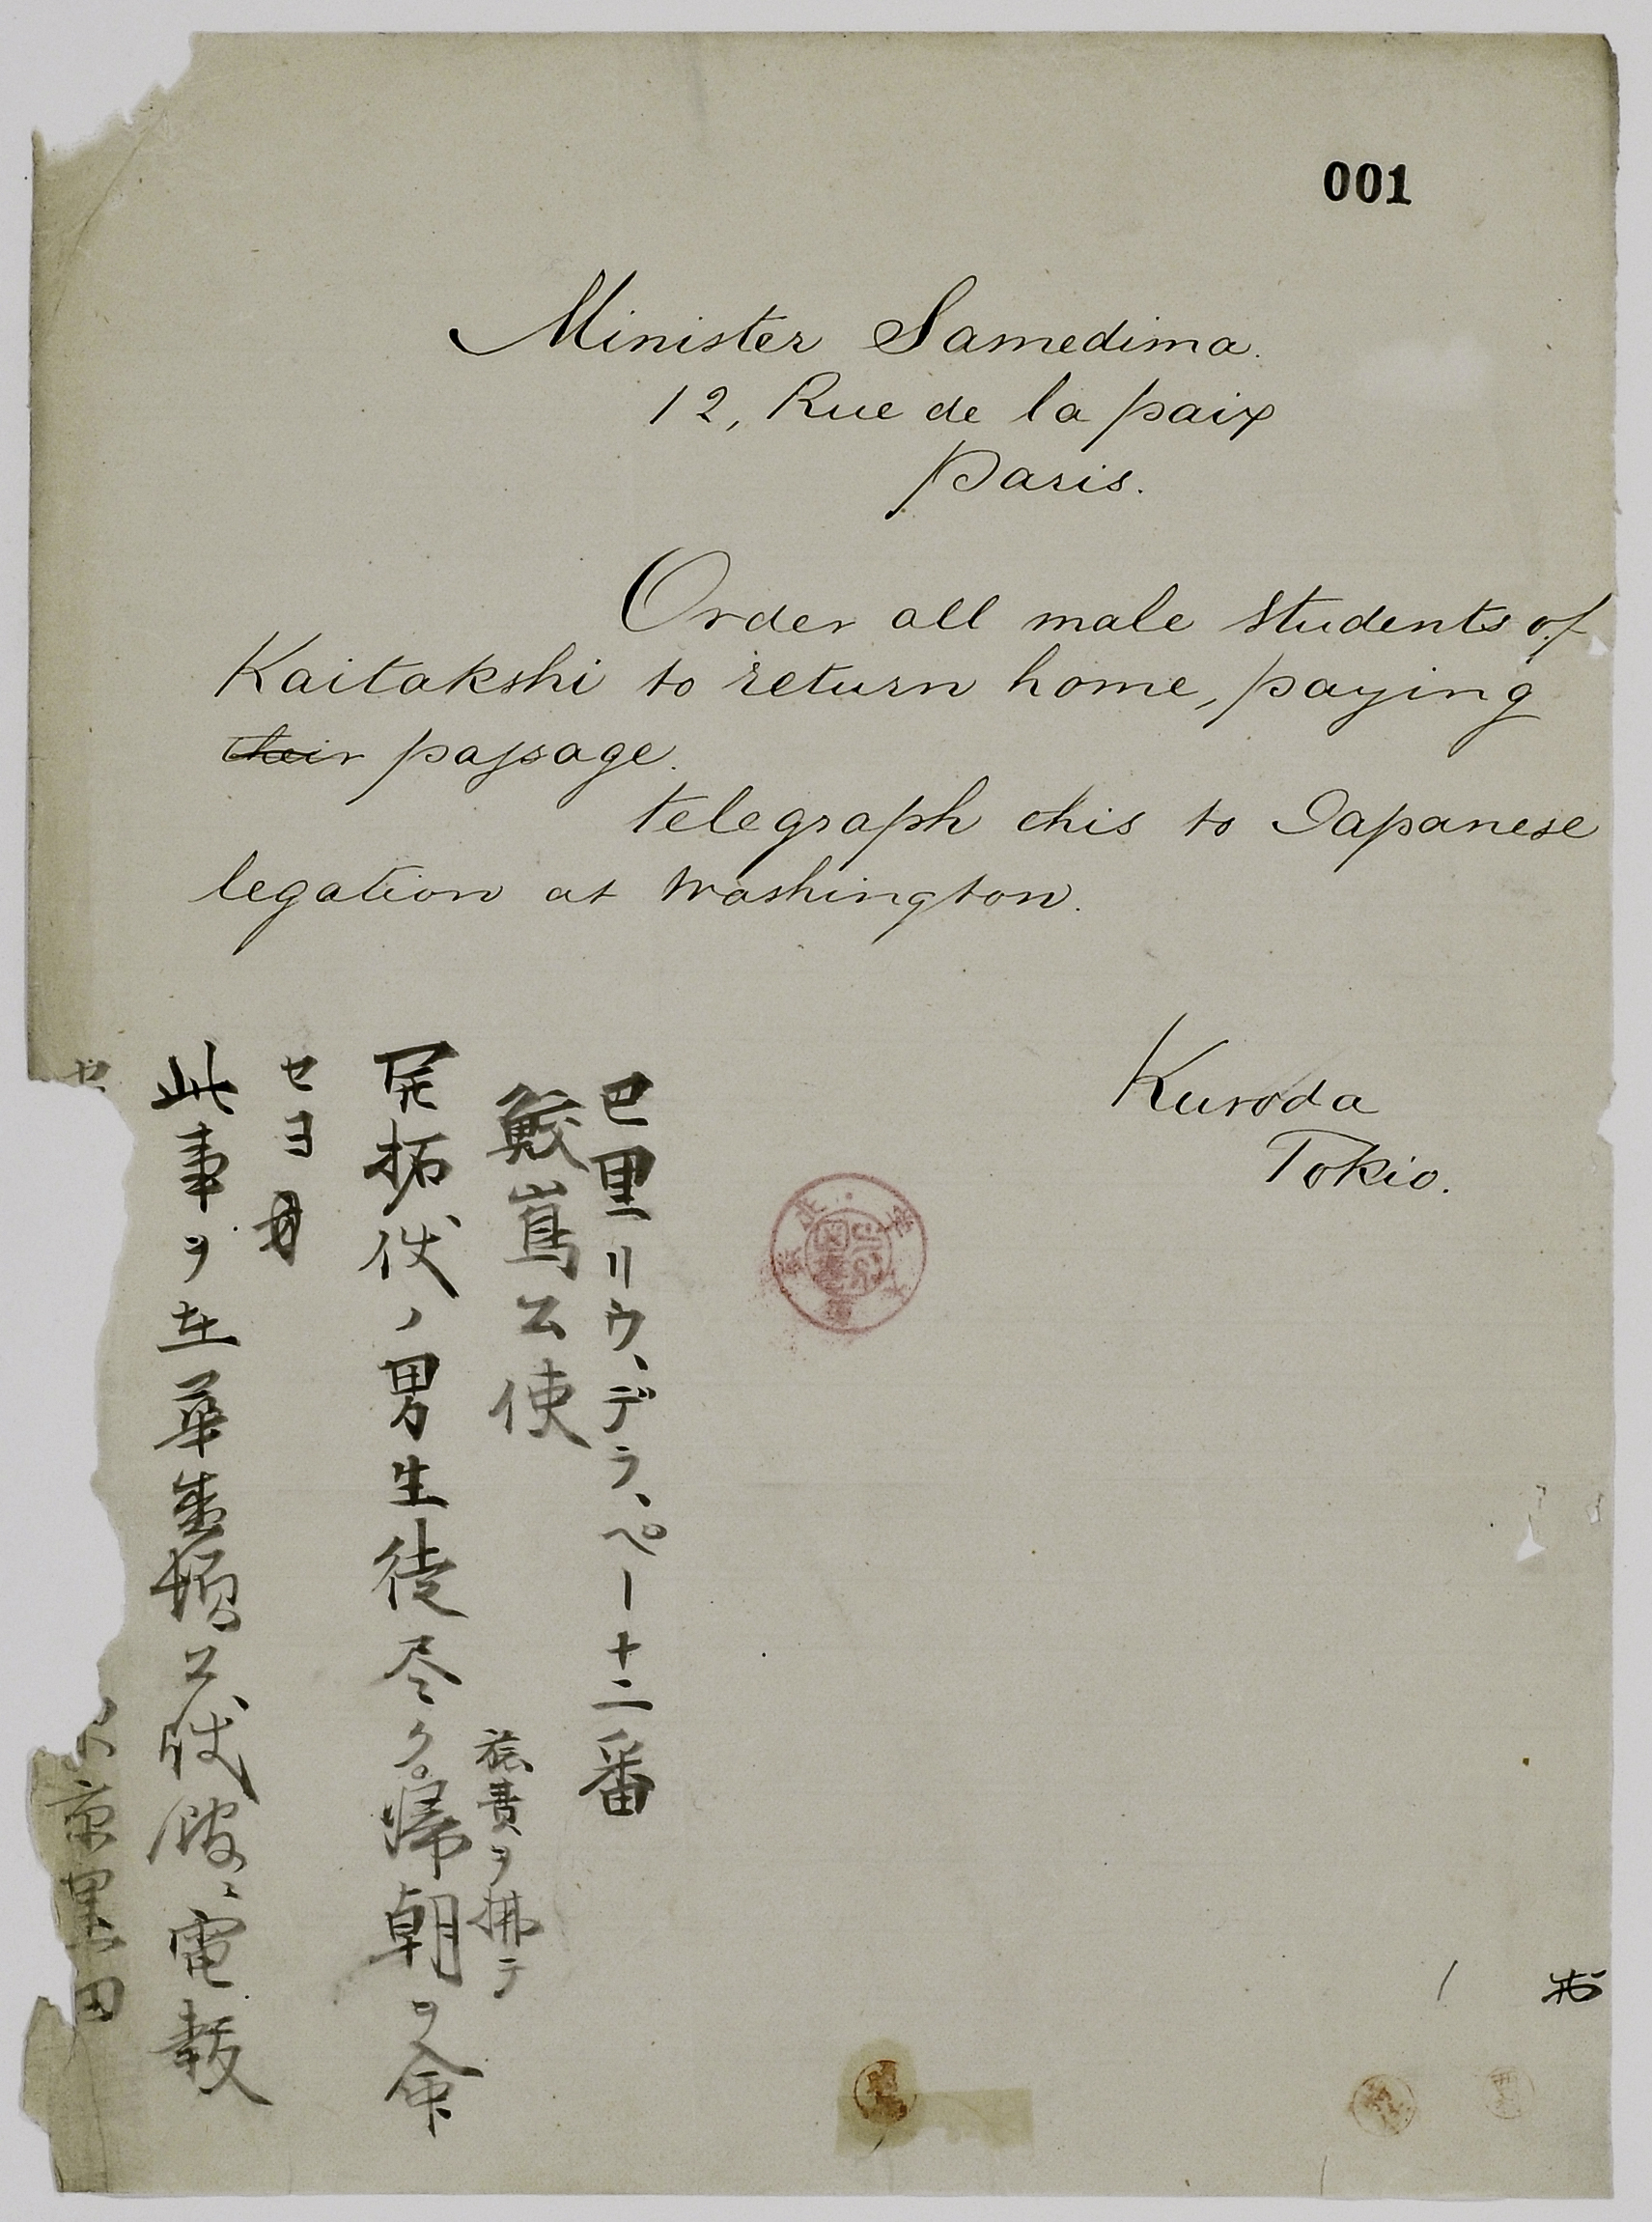 001
Minister Samedima.
12, Rue de la paix
Paris.
Order all male students of
Kaitakshi to return home, paying
their passage.
telegraph this to Japanese
legation at Washington.
Kuroda
Tokio.
巴里リウ、デラ、ペー十二番
鮫嶌公使
旅費ヲ拂テ
開拓使ノ男生徒尽ク帰朝ヲ命
セヨ
此事ヲ在華盛頓公使館ヘ電報
セ
京黒田